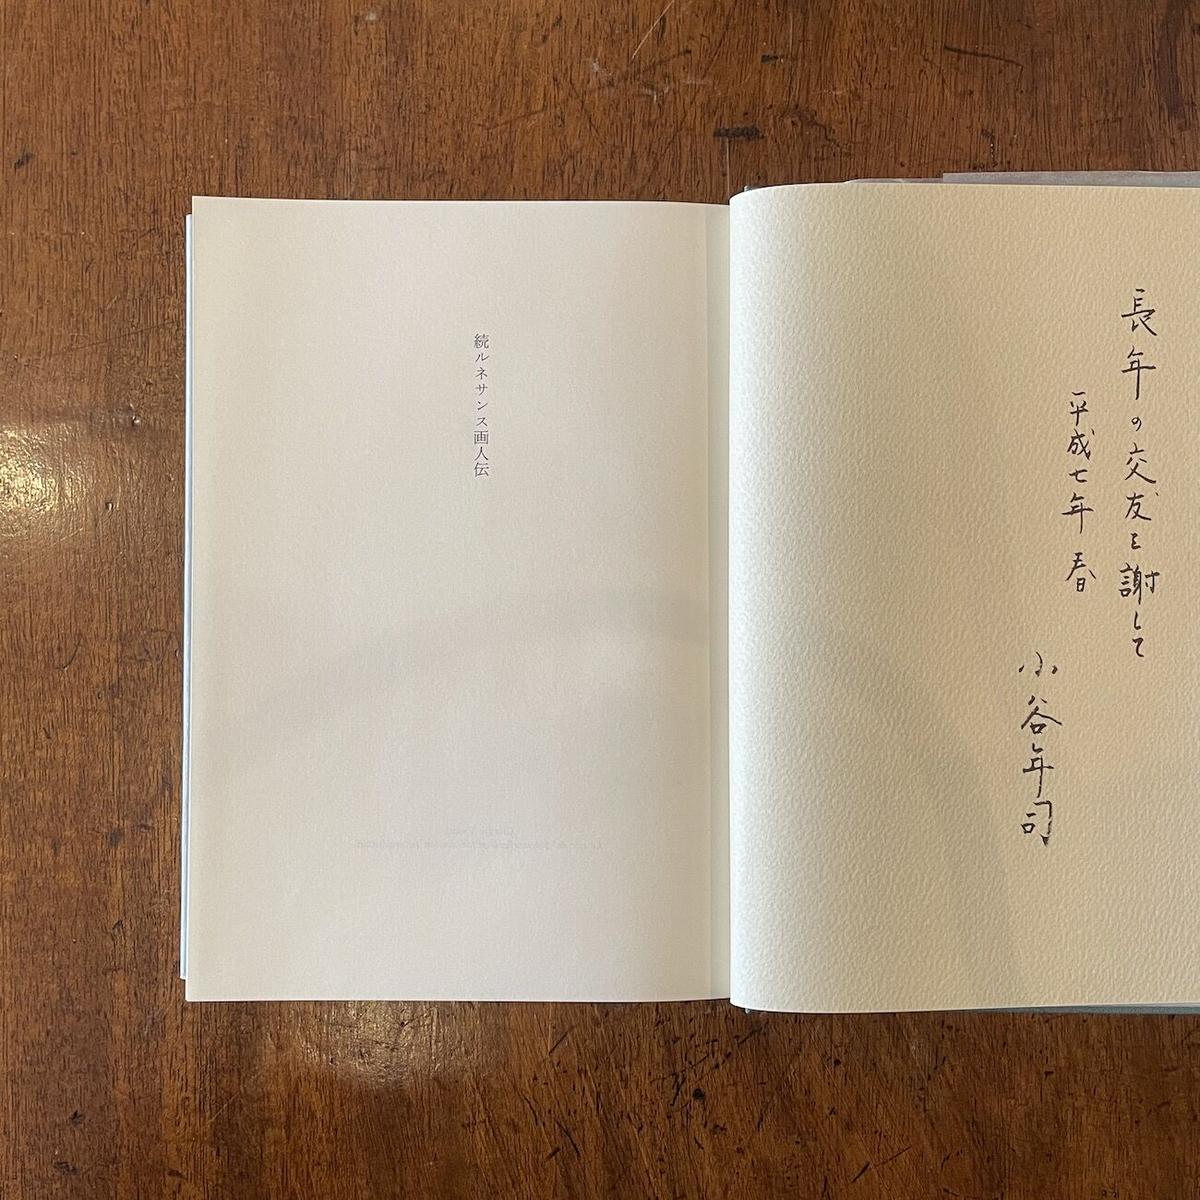 長年の交友を謝して
平成七年 春
小谷年司
続ルネサンス画人伝